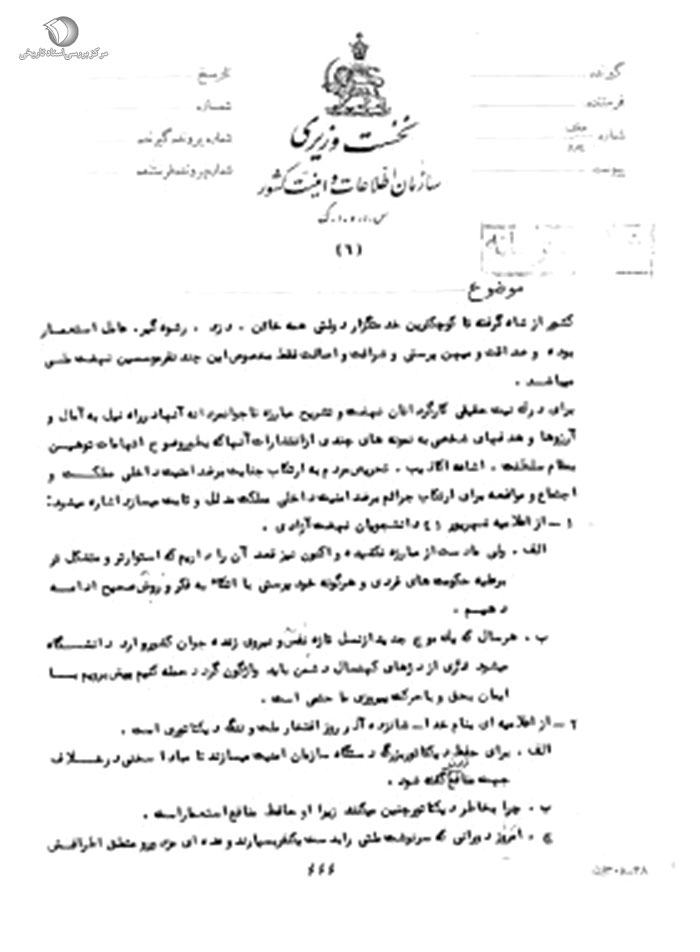 مرکز بررسی اسناد تاریخی
گیرنده
فرستنده
شماره
پیوست
تاریخ
شماره
شماره پرونده گیرنده
شماره پرونده فرستنده
نخست وزیری
سازمان اطلاعات و امنیت کشور
س.ا.و.ا.ک
(٦)
موضوع
کشور از شاه گرفته تا کوچکترین خدمتگزار دولتش همه خائن . دزد . رشوه گیر . عامل استعمار
بوده و صداقت و میهن پرستی و شرافت و اصالت فقط مخصوص این چند نفر موسسین نهضت ملی
میباشد .
برای درک نیت حقیقی کارگردانان نهضت و تشریح مبارزه ناجوانمردانه آنها در راه نیل به آمال و
آرزوها و هدفهای شخصی به نمونه های چندی از انتشارات آنها که بطور وضوح اتهامات توهین
بمقام سلطنت . اشاعه اکاذیب . تحریص مردم به ارتکاب جنایت بر ضد امنیت داخلی مملکت و
اجتماع و مواضعه برای ارتکاب جرائم بر ضد امنیت داخلی مملکت مدلل و ثابت میسازد اشاره میشود:
١ــ از اعلامیه شهریور ٤١ دانشجویان نهضت آزادی .
الف . ولی ما دست از مبارزه نکشیده و اکنون نیز قصد آن را داریم که استوارتر و متشکل تر
برعلیه حکومت های فردی و هرگونه خود پرستی با اتکاء به فکر و روش صحیح ادامه
دهیم .
ب . هر سال که یک موج جدید از نسل تازه نفس و نیروی زنده جوان کشور وارد دانشگاه
میشود دژی از دژهای کهنسال دشمن باید واژگون گردد حمله کنیم پیش برویم با
ایمان بحق و با حرکت پیروزی ما حتمی است .
٢ــ از اعلامیه ای بنام خدا ــ شانزده آذر روز افتخار ملت و ننگ دیکتاتوری است .
الف . برای حفظ دیکتاتور بزرگ دستگاه سازمان امنیت میسازند تا مبادا سخنی در خلاف
جهت منافع گفته شود .
ب . چرا بخاطر دیکتاتور چنین میکنند زیرا او حافظ منافع استعمار است .
ج . امروز دورانی که سرنوشت ملتی را بدست یکنفر بسپارند و عده ای مزدور و متملق اطرافش